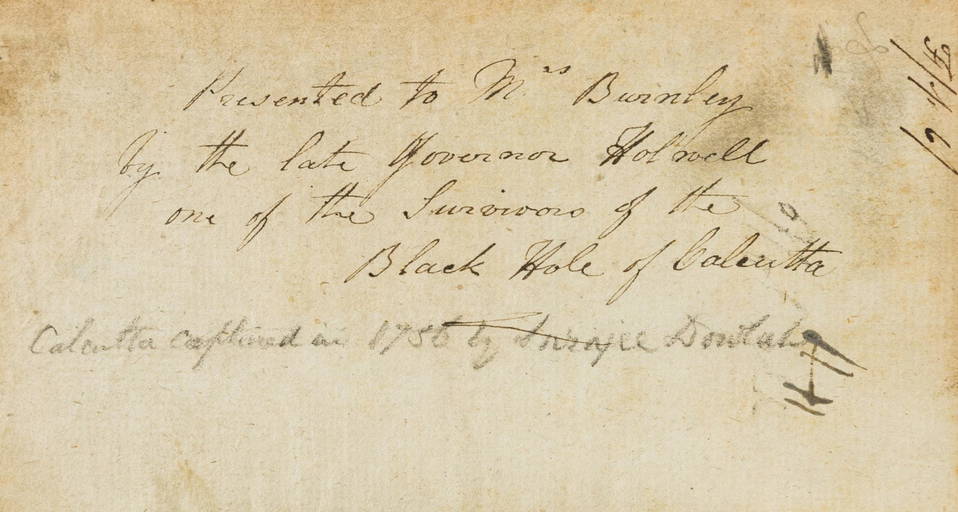 Presented to Mrs Burnley
by the late Governor Holwell
one of the Survivors of the
Black Hole of Calcutta
Calcutta captured in 1756 by Surajee Dowlah